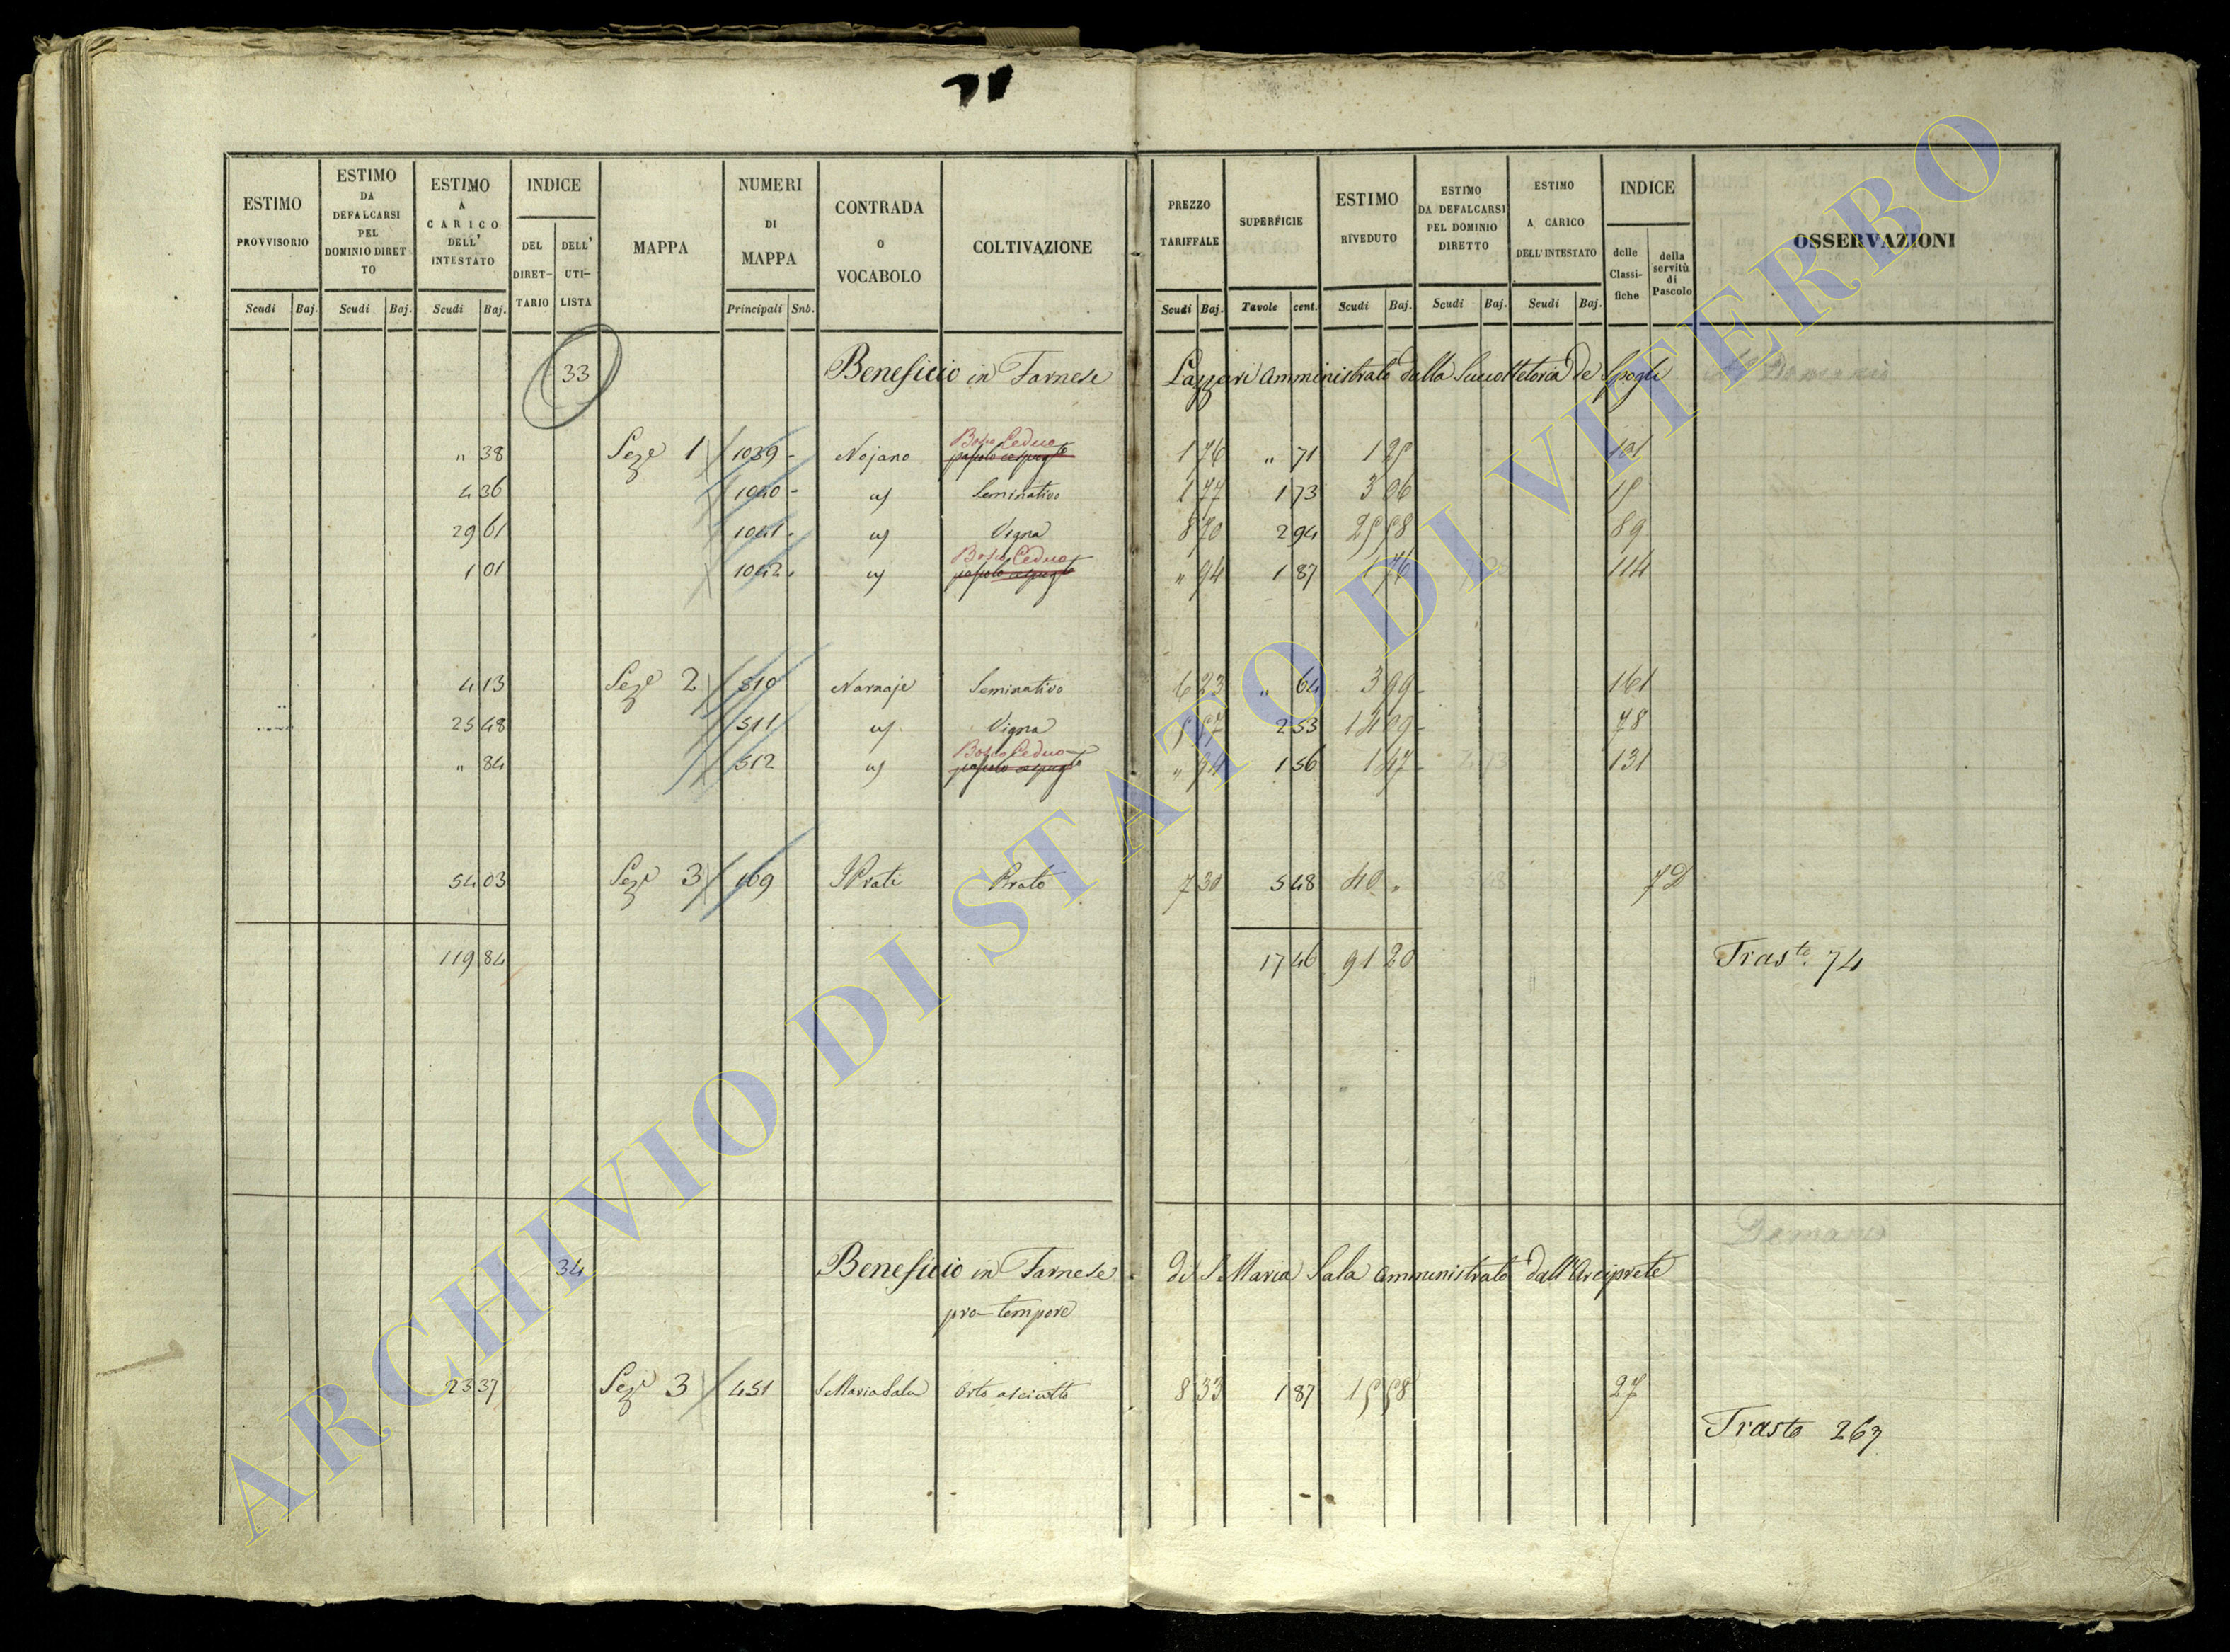 ESTIMO PROVVISORIO Scudi Baj.
ESTIMO DA DEFALCARSI PEL DOMINIO DIRETTO Scudi Baj.
ESTIMO A CARICO DELL' INTESTATO Scudi Baj.
INDICE DEL DIRET-TARIO DELL' UTI-LISTA
MAPPA
NUMERI DI MAPPA Principali Sub.
CONTRADA O VOCABOLO
COLTIVAZIONE
PREZZO TARIFFALE Scudi Baj.
SUPERFICIE Tavole cent.
ESTIMO RIVEDUTO Scudi Baj.
ESTIMO DA DEFALCARSI PEL DOMINIO DIRETTO Scudi Baj.
ESTIMO A CARICO DELL'INTESTATO Scudi Baj.
INDICE delle Classi-fiche della servitù di Pascolo
OSSERVAZIONI
33 Beneficio in Farnese Lazzari Amministrato dalla de Spogli
" 38 Seze 1 1039 Nojano Bosco Ceduo 1 76 " 71 1 25 101
4 36 1040 Seminativo 1 77 1 73 3 06 15
29 61 1041 Vigna 8 70 2 94 25 58 89
1 01 1042 Bosco Ceduo " 94 1 87 1 76 114
4 13 Seze 2 510 Narnaje Seminativo 6 23 " 64 3 99 161
25 48 511 Vigna 2 53 78
" 84 512 Bosco Ceduo " 94 1 56 1 47 131
54 03 Seze 3 109 I Prati Prato 7 30 5 48 40 "
119 84 17 46 91 20 Trasto. 74
Demanio
34 Beneficio in Farnese di S. Maria Sala Amministrato dall'Arciprete
pro-tempore
23 37 Seze 3 451 S. Maria Sala Orto asciutto 8 33 1 87 15 58 27
Trasto 267
ARCHIVIO DI STATO DI VITERBO